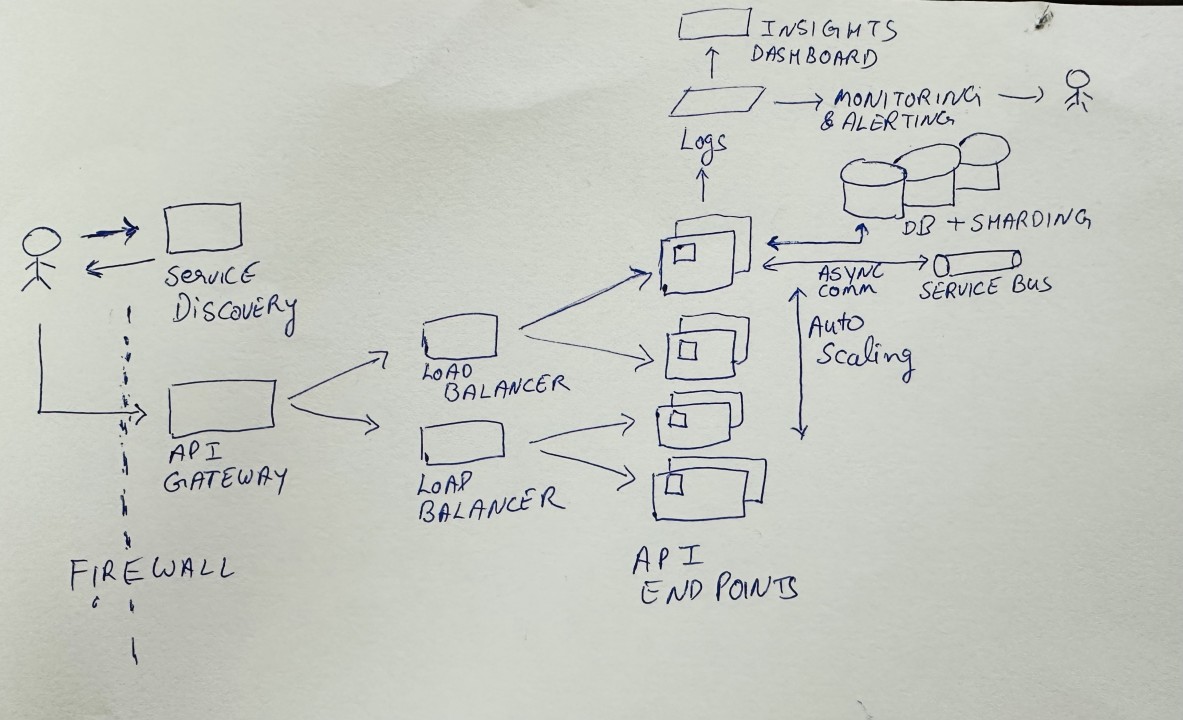 INSIGHTS
DASHBOARD
MONITORING
& ALERTING
Logs
DB + SHARDING
ASYNC
COMM
SERVICE BUS
Auto
Scaling
SERVICE
DISCOVERY
LOAD
BALANCER
API
GATEWAY
LOAD
BALANCER
FIREWALL
API
END POINTS